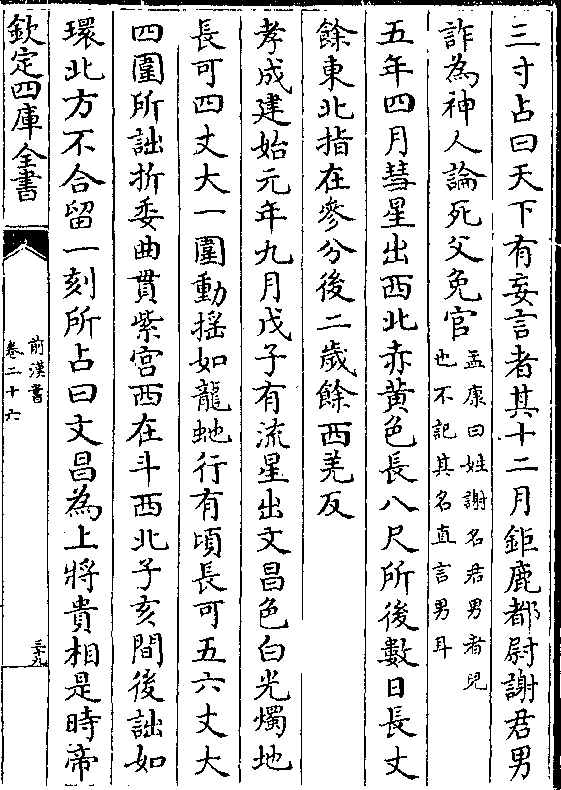 三寸占曰天下有妄言者其十二月鉅鹿都尉謝君男
詐為神人論死父免官
孟康曰姓謝名君男者兒
也不記其名直言男耳
五年四月彗星出西北赤黄色長八尺所後數日長丈
餘東北指在參分後二歲餘西羌反
孝成建始元年九月戊子有流星出文昌色白光燭地
長可四丈大一圍動揺如龍虵行有頃長可五六丈大
四圍所詘折委曲貫紫宫西在斗西北子亥間後詘如
環北方不合留一刻所占曰文昌為上將貴相是時帝
欽定四庫全書
前漢書
卷二十六
三十九